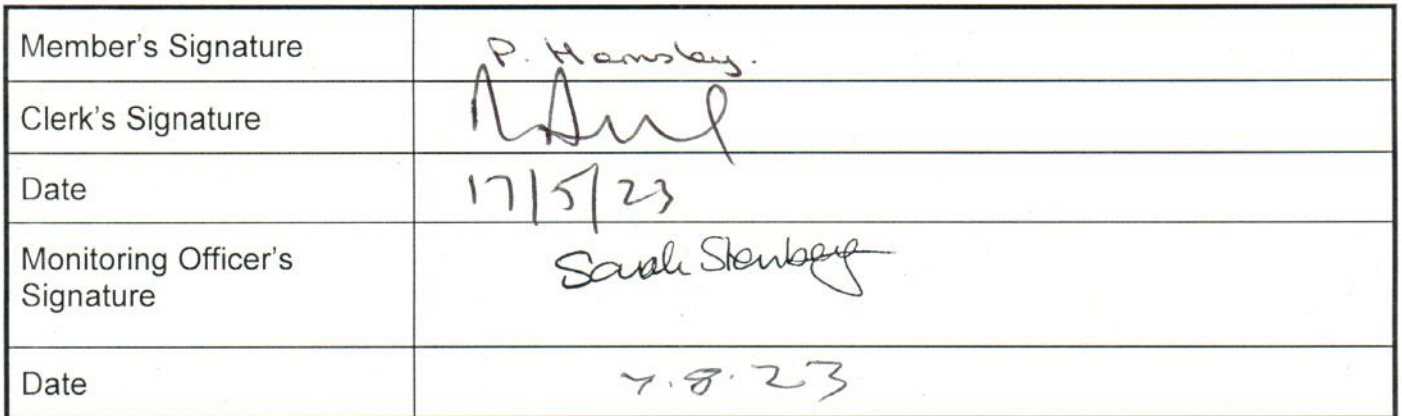 Member's Signature P. Hemsley.
Clerk's Signature
Date 17/5/23
Monitoring Officer's
Signature Sarah Sternberg
Date 7.8.23